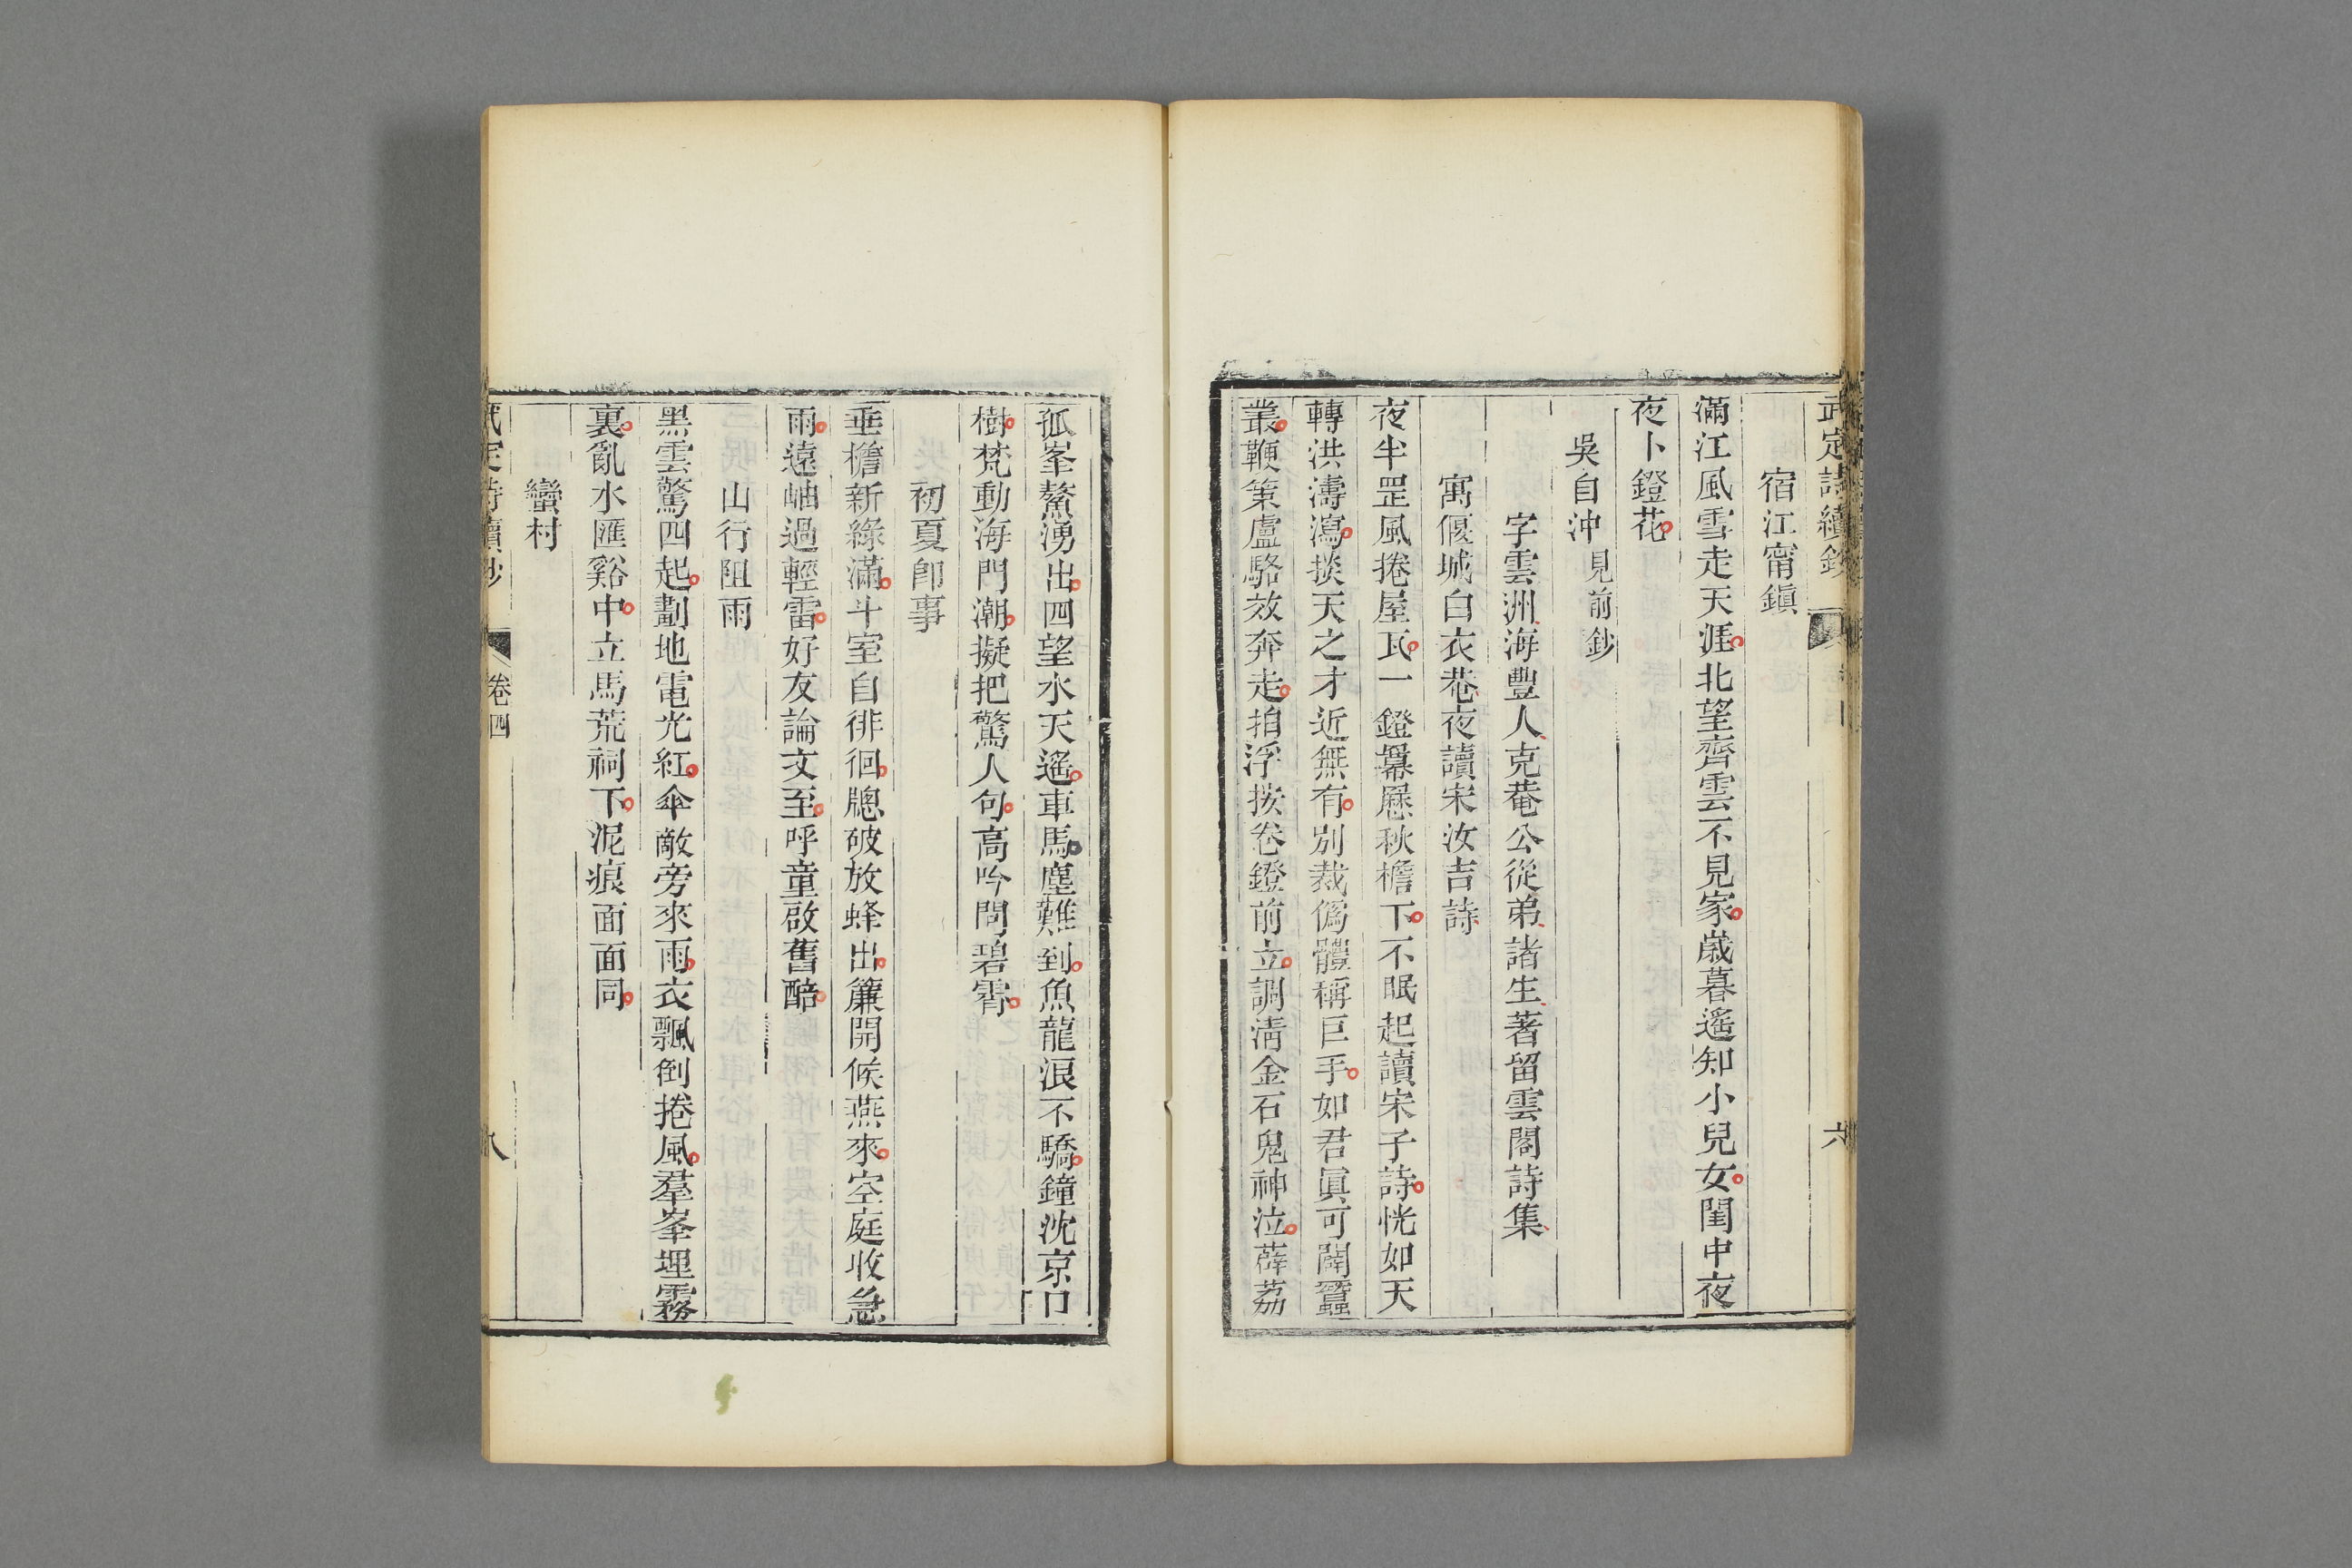 武定詩續鈔
六
宿江甯鎮
滿江風雪走天涯北望齊雲不見家歲暮遙知小兒女閨中夜
夜卜鐙花
吳自沖見前鈔
字雲洲海豐人克菴公從弟諸生著留雲閣詩集
寓偃城白衣巷夜讀宋汝吉詩
夜半罡風捲屋瓦一鐙羃䍥秋檐下不眠起讀宋子詩恍如天
轉洪濤瀉掞天之才近無有別裁僞體稱巨手如君眞可闢蠶
叢鞭策盧駱效奔走拍浮按卷鐙前立調淸金石鬼神泣薜荔
孤峯鰲湧出四望水天遙車馬塵難到魚龍浪不驕鐘沈京口
樹梵動海門潮擬把驚人句高吟問碧霄
初夏卽事
垂檐新綠滿斗室自徘徊牎破放蜂出簾開候燕來空庭收急
雨遠岫過輕雷好友論文至呼童啟舊醅
山行阻雨
黑雲驚四起劃地電光紅傘敵旁來雨衣飄倒捲風羣峯埋霧
裏亂水匯谿中立馬荒祠下泥痕面面同
蠻村
武定詩續鈔
卷四
八